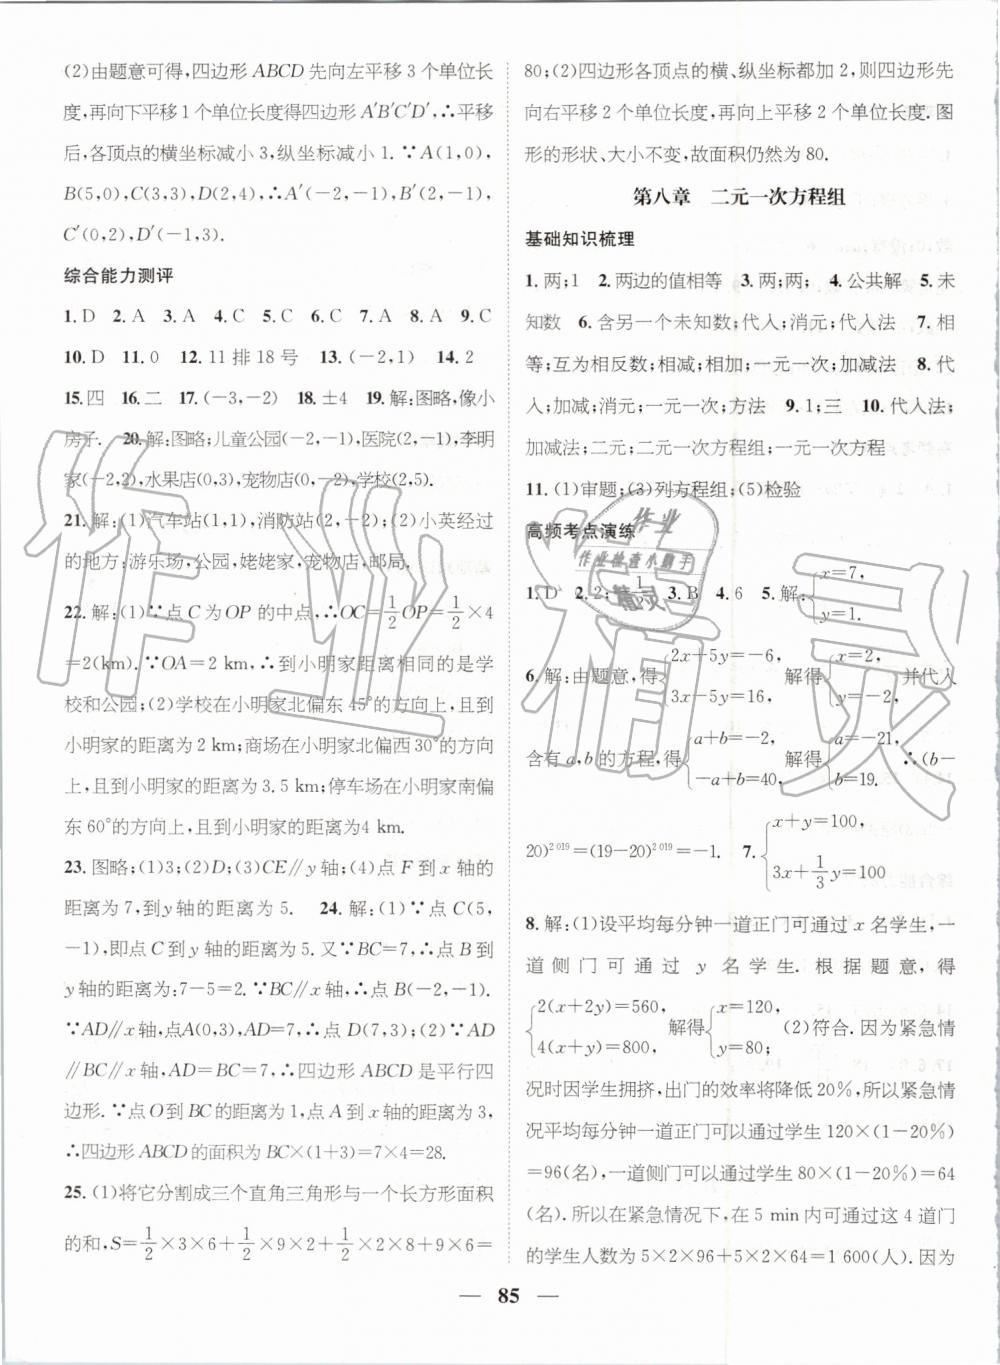 (2)由题意可得,四边形 ABCD 先向左平移 3 个单位长
度,再向下平移 1 个单位长度得四边形 A′B′C′D′,∴平移
后,各顶点的横坐标减小 3,纵坐标减小 1.∵A(1,0),
B(5,0),C(3,3),D(2,4),∴A′(-2,-1),B′(2,-1),
C′(0,2),D′(-1,3).
综合能力测评
1.D 2.A 3.A 4.C 5.C 6.C 7.A 8.A 9.C
10.D 11.0 12.11 排 18 号 13.(-2,1) 14.2
15.四 16.二 17.(-3,-2) 18.±4 19.解:图略,像小
房子. 20.解:图略;儿童公园(-2,-1),医院(2,-1),李明
家(-2,2),水果店(0,3),宠物店(0,-2),学校(2,5).
21.解:(1)汽车站(1,1),消防站(2,-2);(2)小英经过
的地方:游乐场,公园,姥姥家,宠物店,邮局.
22.解:(1)∵点 C 为 OP 的中点,∴OC=1/2OP=1/2×4
=2(km).∵OA=2 km,∴到小明家距离相同的是学
校和公园;(2)学校在小明家北偏东 45°的方向上,且到
小明家的距离为 2 km;商场在小明家北偏西 30°的方向
上,且到小明家的距离为 3.5 km;停车场在小明家南偏
东 60°的方向上,且到小明家的距离为4 km.
23.图略;(1)3;(2)D;(3)CE∥y 轴;(4)点 F 到 x 轴的
距离为 7,到y 轴的距离为 5. 24.解:(1)∵点 C(5,
-1),即点 C 到 y 轴的距离为 5.又∵BC=7,∴点 B 到
y轴的距离为:7-5=2.∵BC∥x 轴,∴点 B(-2,-1).
∵AD∥x 轴,点A(0,3),AD=7,∴点 D(7,3);(2)∵AD
∥BC∥x 轴,AD=BC=7,∴四边形 ABCD 是平行四
边形.∵点 O 到 BC 的距离为 1,点 A 到 x 轴的距离为 3,
∴四边形 ABCD 的面积=BC×(1+3)=7×4=28.
25.(1)将它分割成三个直角三角形与一个长方形面积
的和,S=1/2×3×6+1/2×9×2+1/2×2×8+9×6=
80;(2)四边形各顶点的横、纵坐标都加 2,则四边形先
向右平移 2 个单位长度,再向上平移 2 个单位长度.图
形的形状、大小不变,故面积仍然为 80.
第八章 二元一次方程组
基础知识梳理
1.两;1 2.两边的值相等 3.两;两; 4.公共解 5.未
知数 6.含另一个未知数;代入;消元;代入法 7.相
等;互为相反数;相减;相加;一元一次;加减法 8.代
入;加减;消元;一元一次;方法 9.1;三 10.代入法;
加减法;二元;二元一次方程组;一元一次方程
11.(1)审题;(3)列方程组;(5)检验
高频考点演练
1.D 2.2;-1/2 3.B 4.6 5.解:{x=7, y=1.
6.解:由题意,得{2x+5y=-6, 3x-5y=16, 解得{x=2, y=-2, 并代入
含有 a,b 的方程,得{a+b=-2, -a+b=40, 解得{a=-21, b=19. ∴(b-
20)^2 019=(19-20)^2 019=-1. 7.{x+y=100, 3x+1/3y=100
8.解:(1)设平均每分钟一道正门可通过 x 名学生,一
道侧门可通过 y 名学生.根据题意,得
{2(x+2y)=560, 4(x+y)=800, 解得{x=120, y=80; (2)符合.因为紧急情
况时因学生拥挤,出门的效率将降低 20%,所以紧急情
况平均每分钟一道正门可以通过学生 120×(1-20%)
=96(名),一道侧门可以通过学生 80×(1-20%)=64
(名).所以在紧急情况下,在 5 min 内可通过这 4 道门
的学生人数为 5×2×96+5×2×64=1 600(人).因为
— 85 —
作业精灵
作业
作业检查小帮手
精灵